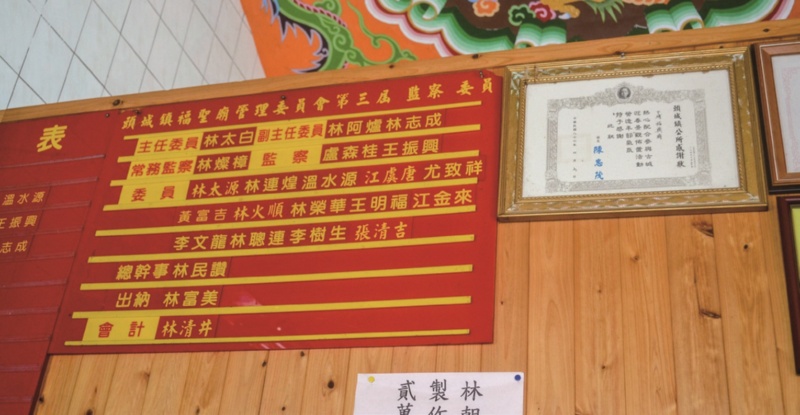 表
溫水源
王振興
志成
頭城鎮福聖廟管理委員會第三屆 監察 委員
主任委員 林太白 副主任委員 林阿爐 林志成
常務監察 林燦樟 監察 盧森桂 王振興
委員 林太源 林連煌 溫水源 江虞唐 尤致祥
黃富吉 林火順 林榮華 王明福 江金來
李文龍 林聰連 李樹生 張清吉
總幹事 林民讚
出納 林富美
會計 林清井
頭城鎮公所感謝狀
陳忠茂
林朝
製作
貳萬